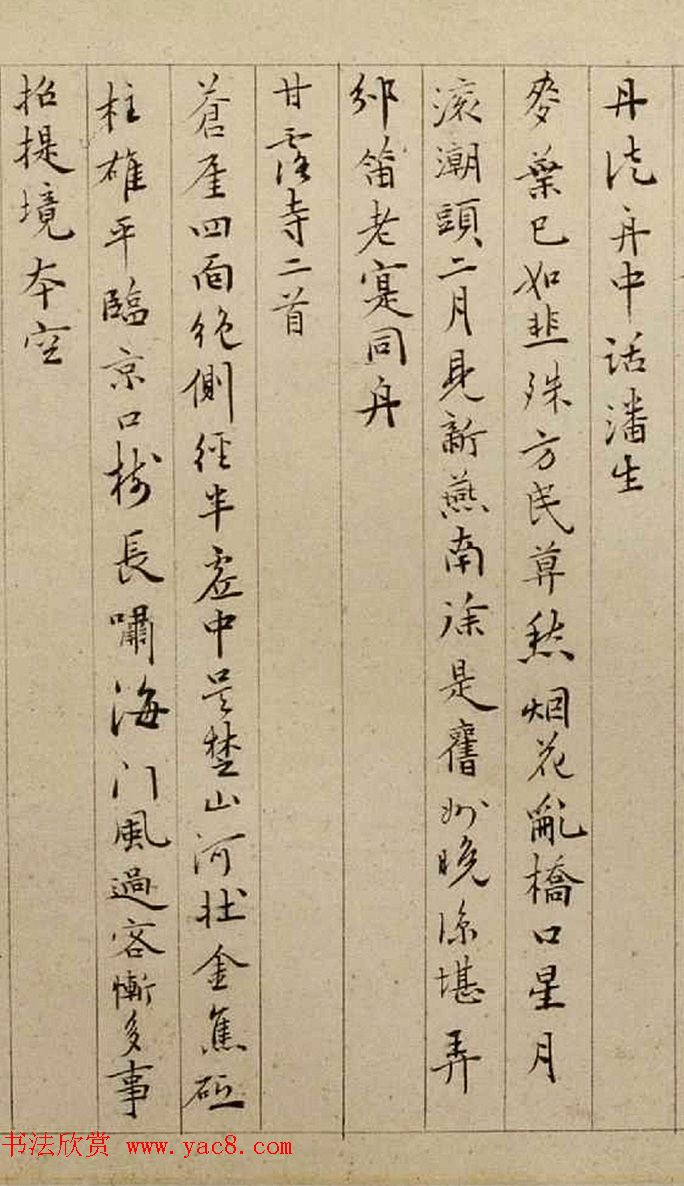 丹徒舟中話潘生
麥葉已如韭殊方民算愁烟花亂橋口星月
滚潮頭二月見新燕南徐是舊州晚涼堪弄
笛老寔同舟
甘露寺二首
蒼崖四面絶側徑半虛中吳楚山河壯金焦砥
柱雄平臨京口樹長嘯海門風過客慚多事
招提境本空
书法欣赏 www.yac8.com